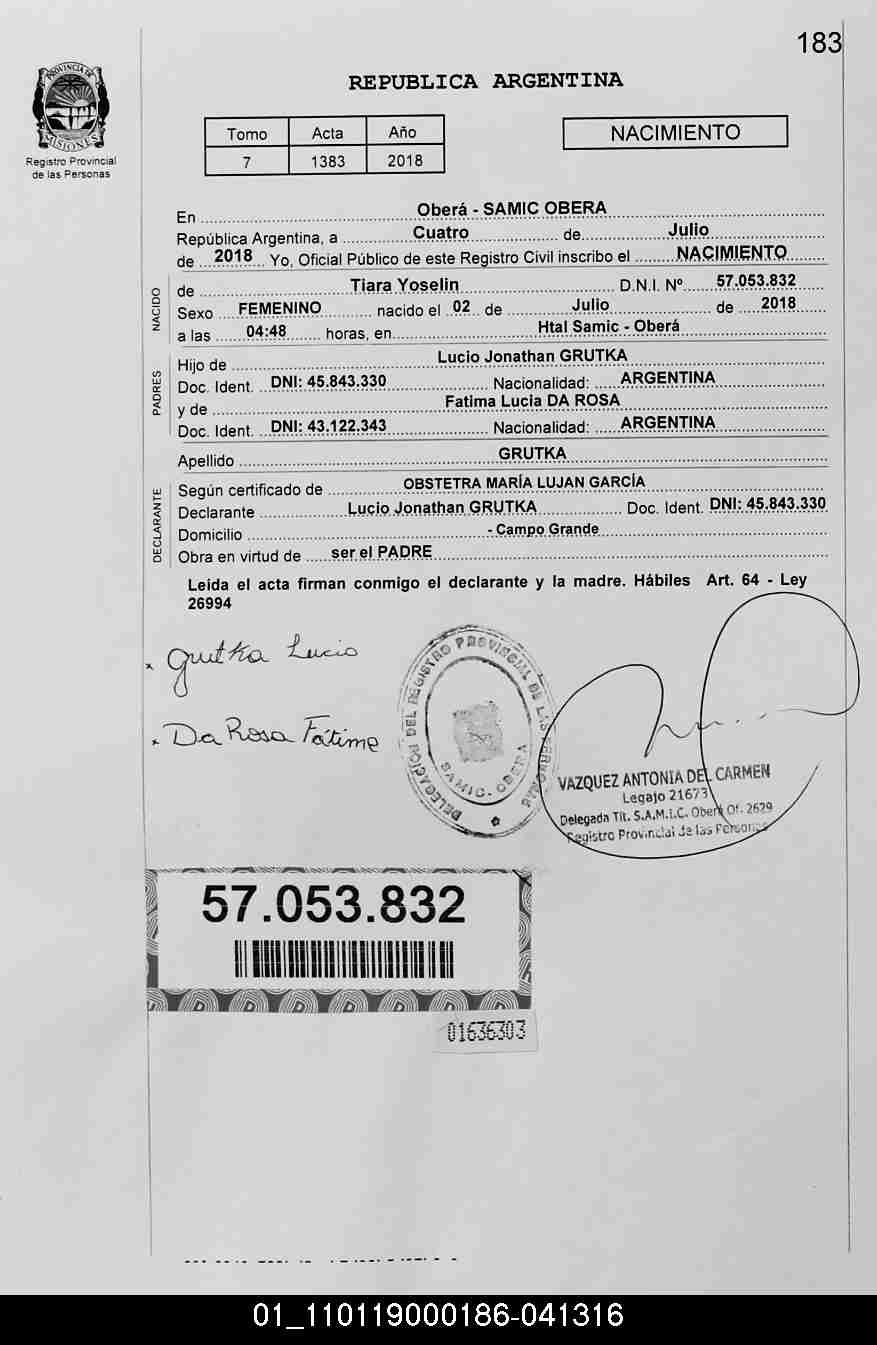 183
PROVINCIA DE
MISIONES
Registro Provincial
de las Personas
REPUBLICA ARGENTINA
Tomo Acta Año
7 1383 2018
NACIMIENTO
En Oberá - SAMIC OBERA
República Argentina, a Cuatro de Julio
de 2018 Yo, Oficial Público de este Registro Civil inscribo el NACIMIENTO
NACIDO
de Tiara Yoselin D.N.I. Nº 57.053.832
Sexo FEMENINO nacido el 02 de Julio de 2018
a las 04:48 horas, en Htal Samic - Oberá
PADRES
Hijo de Lucio Jonathan GRUTKA
Doc. Ident. DNI: 45.843.330 Nacionalidad: ARGENTINA
y de Fatima Lucia DA ROSA
Doc. Ident. DNI: 43.122.343 Nacionalidad: ARGENTINA
Apellido GRUTKA
DECLARANTE
Según certificado de OBSTETRA MARÍA LUJAN GARCÍA
Declarante Lucio Jonathan GRUTKA Doc. Ident. DNI: 45.843.330
Domicilio - Campo Grande
Obra en virtud de ser el PADRE
Leida el acta firman conmigo el declarante y la madre. Hábiles Art. 64 - Ley
26994
x Grutka Lucio
x Da Rosa Fátima
DELEGACION DEL REGISTRO PROVINCIAL DE LAS PERSONAS
SAMIC. OBERA
VAZQUEZ ANTONIA DEL CARMEN
Legajo 21673
Delegada Tit. S.A.M.I.C. Oberá Of. 2629
Registro Provincial de las Personas
57.053.832
01636303
01_110119000186-041316